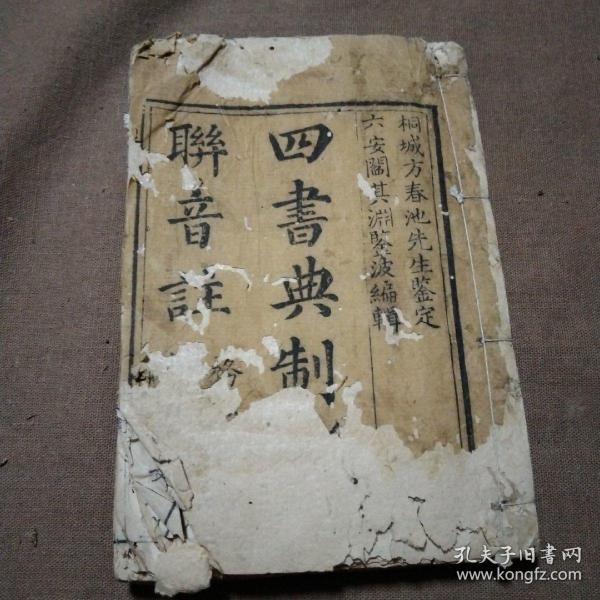 桐城方春池先生鉴定
六安闞其淵鑒波編輯
四書典制
聯音註
孔夫子旧书网
www.kongfz.com